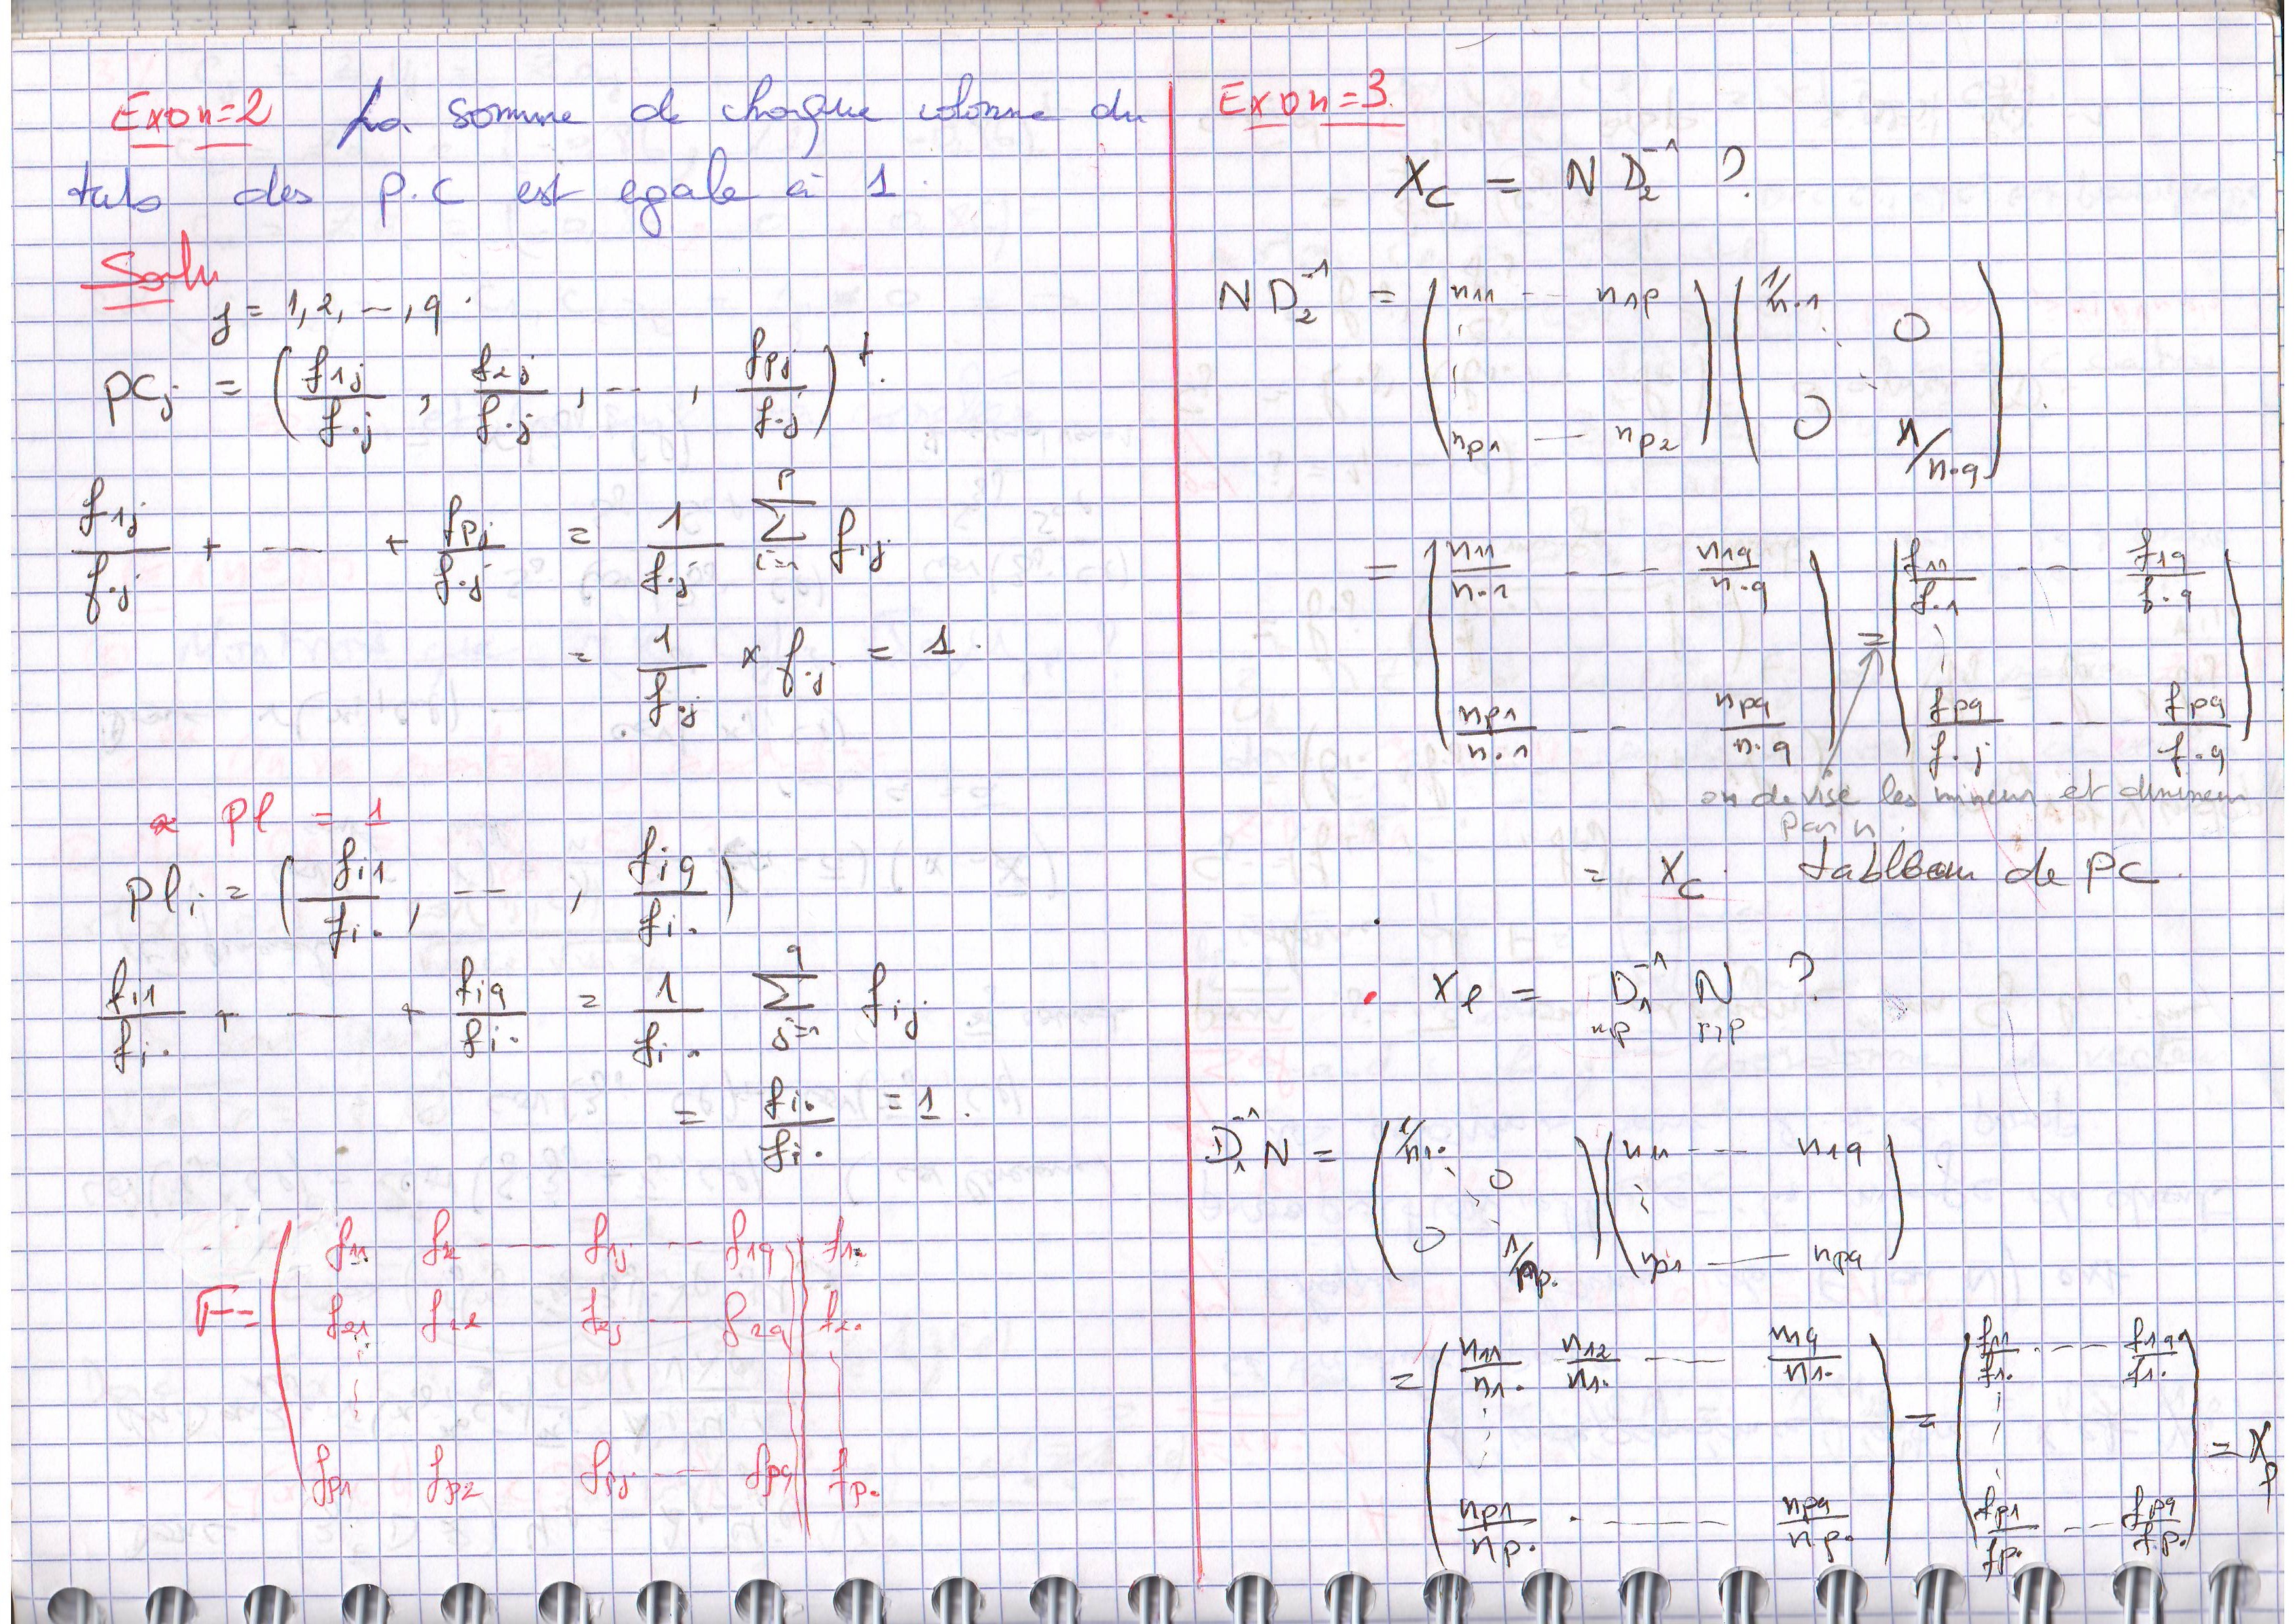 Exo n=2 La somme de chaque colonne du
tab des P.C est egale à 1.
Solu
j = 1, 2, --, q.
PC_j = ( f_1j / f.j , f_2j / f.j , -- , f_pj / f.j )^t.
f_1j / f.j + --- + f_pj / f.j = 1 / f.j Σ_{i=1}^{p} f_ij
= 1 / f.j × f.j = 1.
Pl = 1
Pl_i = ( f_i1 / f_i. , -- , f_iq / f_i. )
f_i1 / f_i. + --- + f_iq / f_i. = 1 / f_i. Σ_{j=1}^{q} f_ij
= f_i. / f_i. = 1.
f_11 f_12 --- f_1j -- f_1q f_1.
F = f_21 f_22 f_2j -- f_2q f_2.
f_p1 f_p2 f_pj --- f_pq f_p.
Exo n=3.
X_C = N D_2^-1 ?
N D_2^-1 = ( n_11 -- n_1p ; n_p1 -- n_p2 ) ( 1/n.1 0 ; 0 1/n.q )
= ( n_11/n.1 --- n_1q/n.q ; n_p1/n.1 -- n_pq/n.q ) = ( f_11/f.1 -- f_1q/f.q ; f_pq/f.j -- f_pq/f.q )
on devise les et
par n.
= X_C. tableau de PC.
X_l = D_1^-1 N ?
D_1^-1 N = ( 1/n_1. 0 ; 0 1/n_p. ) ( n_11 --- n_1q ; n_p1 --- n_pq )
= ( n_11/n_1. n_12/n_1. --- n_1q/n_1. ; n_p1/n_p. --- n_pq/n_p. ) = ( f_11/f_1. --- f_1q/f_1. ; f_p1/f_p. -- f_pq/f_p. ) = X_l